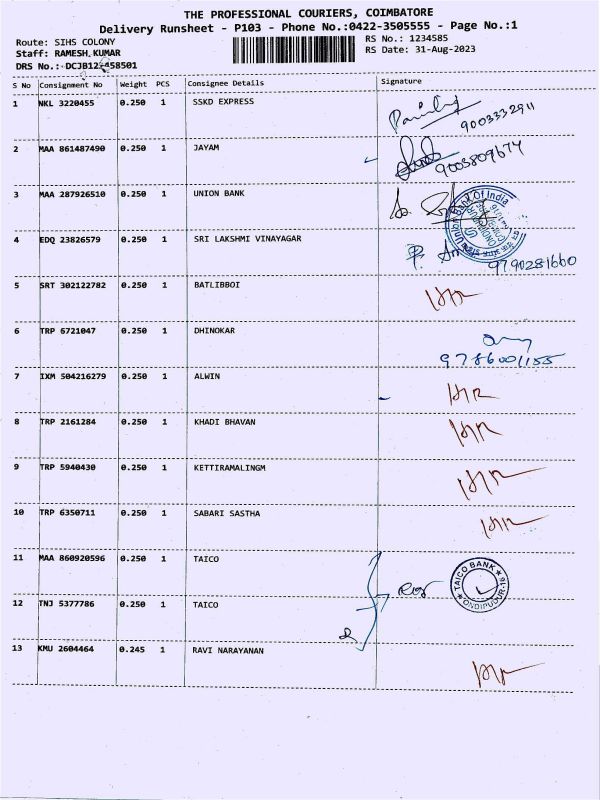 THE PROFESSIONAL COURIERS, COIMBATORE
Delivery Runsheet - P103 - Phone No.:0422-3505555 - Page No.:1
Route: SIHS COLONY
RS No.: 1234585
Staff: RAMESH.KUMAR
RS Date: 31-Aug-2023
DRS No.:-DCJB123458501
S No Consignment No Weight PCS Consignee Details Signature
1 NKL 3220455 0.250 1 SSKD EXPRESS
9003332911
2 MAA 861487490 0.250 1 JAYAM
9003809674
3 MAA 287926510 0.250 1 UNION BANK
Union Bank Of India
4 EDQ 23826579 0.250 1 SRI LAKSHMI VINAYAGAR
9790281660
5 SRT 302122782 0.250 1 BATLIBBOI
6 TRP 6721047 0.250 1 DHINOKAR
9786001155
7 IXM 504216279 0.250 1 ALWIN
8 TRP 2161284 0.250 1 KHADI BHAVAN
9 TRP 5940430 0.250 1 KETTIRAMALINGM
10 TRP 6350711 0.250 1 SABARI SASTHA
11 MAA 860920596 0.250 1 TAICO
TAICO BANK
ONDIPUDUR-16
12 TNJ 5377786 0.250 1 TAICO
13 KMU 2604464 0.245 1 RAVI NARAYANAN